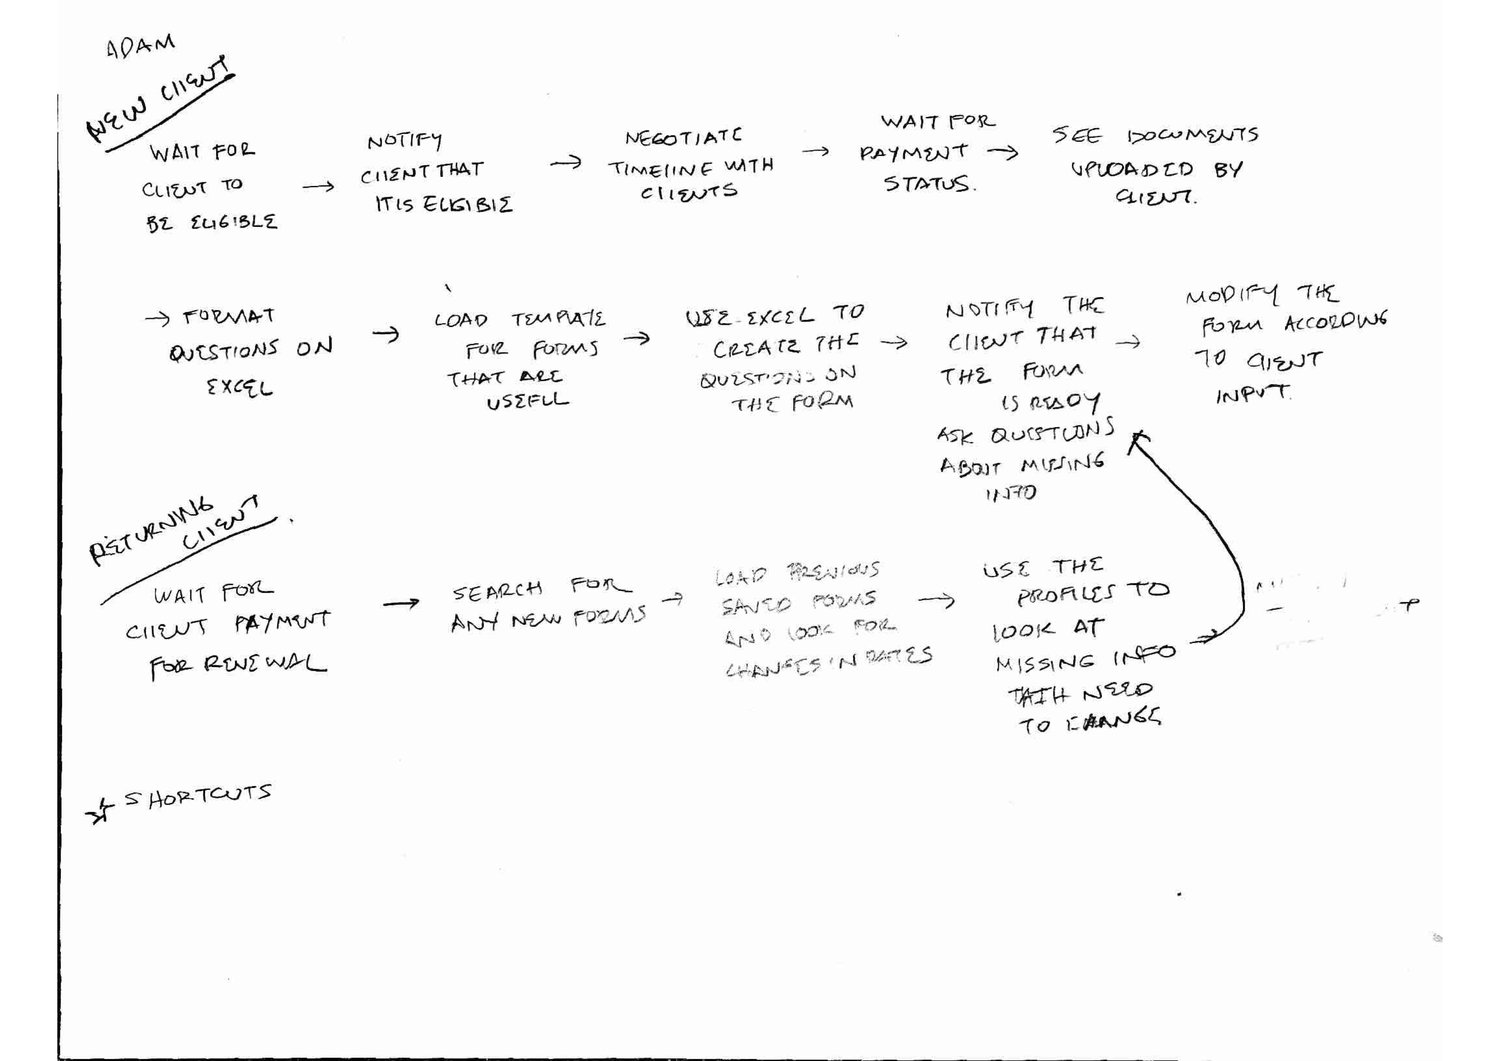 ADAM
NEW CLIENT
WAIT FOR
CLIENT TO
BE ELIGIBLE
→
NOTIFY
CLIENT THAT
IT IS ELIGIBLE
→
NEGOTIATE
TIMELINE WITH
CLIENTS
→
WAIT FOR
PAYMENT
STATUS.
→
SEE DOCUMENTS
UPLOADED BY
CLIENT.
→ FORMAT
QUESTIONS ON
EXCEL
→
LOAD TEMPLATE
FOR FORMS
THAT ARE
USEFLL
→
USE EXCEL TO
CREATE THE
QUESTIONS ON
THE FORM
→
NOTIFY THE
CLIENT THAT
THE FORM
IS READY
ASK QUESTIONS
ABOUT MISSING
INFO
→
MODIFY THE
FORM ACCORDING
TO CLIENT
INPUT.
RETURNING
CLIENT
WAIT FOR
CLIENT PAYMENT
FOR RENEWAL
→
SEARCH FOR
ANY NEW FORMS
→
LOAD PREVIOUS
SAVED FORMS
AND LOOK FOR
CHANGES IN DATES
→
USE THE
PROFILES TO
LOOK AT
MISSING INFO →
NEED
TO CHANGE
* SHORTCUTS